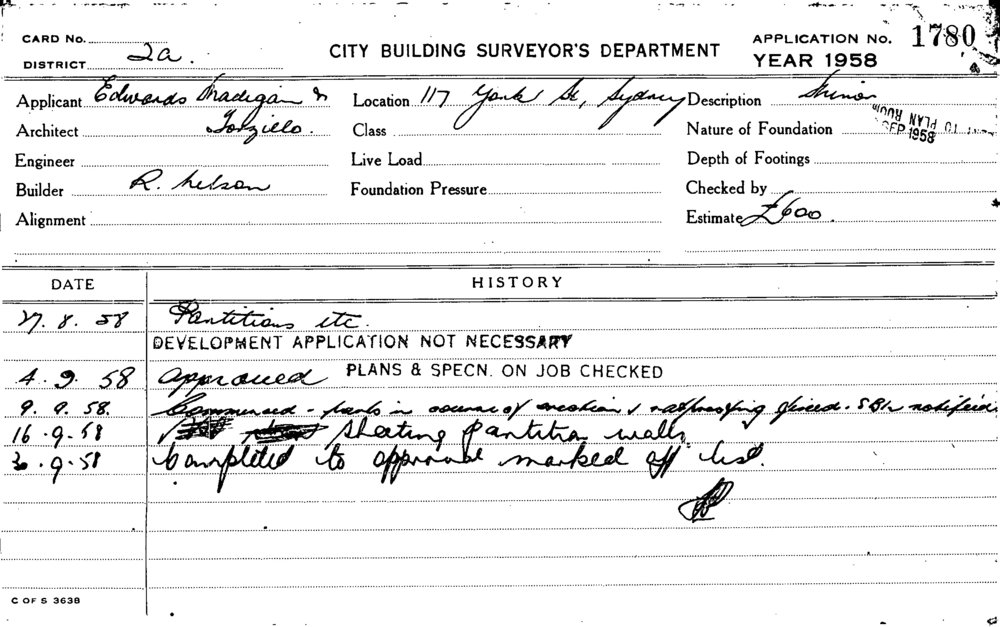 CARD No.
DISTRICT 2a.
CITY BUILDING SURVEYOR'S DEPARTMENT
APPLICATION No. 1780
YEAR 1958
Applicant Edwards Madigan &
Location 117 York St, Sydney
Description Minor
Architect Torzillo.
Class
Nature of Foundation
TO PLAN ROOM
SEP 1958
Engineer
Live Load
Depth of Footings
Builder R. Nelson
Foundation Pressure
Checked by
Alignment
Estimate £600.
DATE HISTORY
27. 8. 58 Partitions etc.
DEVELOPMENT APPLICATION NOT NECESSARY
4. 9. 58 Approved PLANS & SPECN. ON JOB CHECKED
9. 9. 58. Commenced - parts in course of erection & ratproofing fixed. notified.
16. 9. 58 sheeting partition walls
30. 9. 58 Completed to approval marked off list.
C OF S 3638